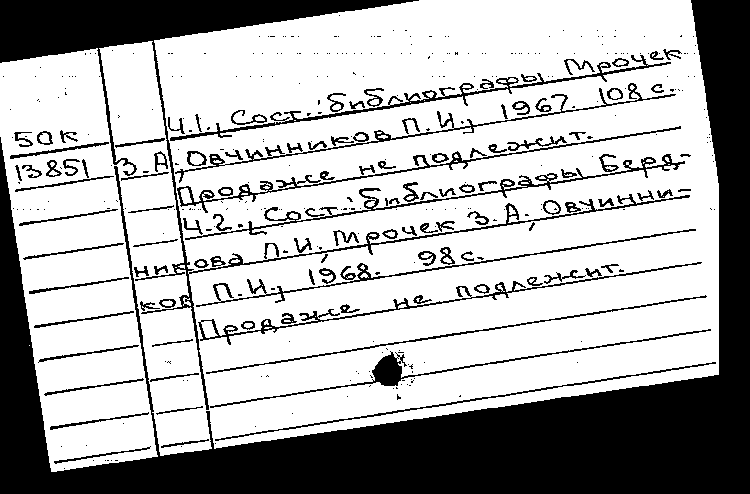 Ч.1., [Сост.: библиографы Мрочек
50к
13851 З.А., Овчинников П.И., 1967. 108 с.
Продаже не подлежит.
Ч.2., [Сост.: библиографы Берд-
никова Л.И., Мрочек З.А., Овчинни-
ков П.И., 1968. 98 с.
Продаже не подлежит.